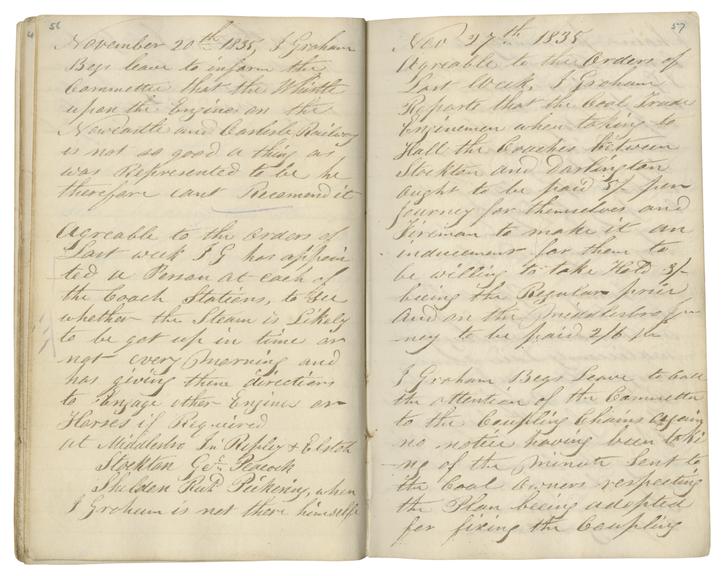 56
November 20th 1835, J Graham
Begs leave to inform the
Committee that the Whistle
upon the Engines on the
Newcastle and Carlisle Railway
is not so good a thing as
was Represented to be he
therefore cant Recomend it
Agreable to the orders of
Last week J G has appoin
ted a Person at each of
the Coach Stations, to See
whether the Steam is Likely
to be got up in time or
not every Morning and
has giving them directions
to Engage other Engines or
Horses if Requiered
at Middlesbro Jn Ripley &
Stockton Geo Peacock
Shildon Richd Pickering, when
J Graham is not there himself
57
Nov 27th 1835
Agreable to the Orders of
Last Week, J Graham
Reports that the Coal Trade
Enginemen when taking to
Hall the Coaches between
Stockton and Darlington
ought to be paid 5/ per
Journey for themselves and
Fireman to make it an
inducement for them to
be willing to take Hold 3/-
being the Regular price
and on the Middlesbro Jur
ney to be paid 2/6 pr
J Graham Begs Leave to Call
the attention of the Committe
to the Coupling Chains again
no notice having been taki
ng of the minute Sent to
the Coal Owners respecting
the Plan being adopted
for fixing the Coupling